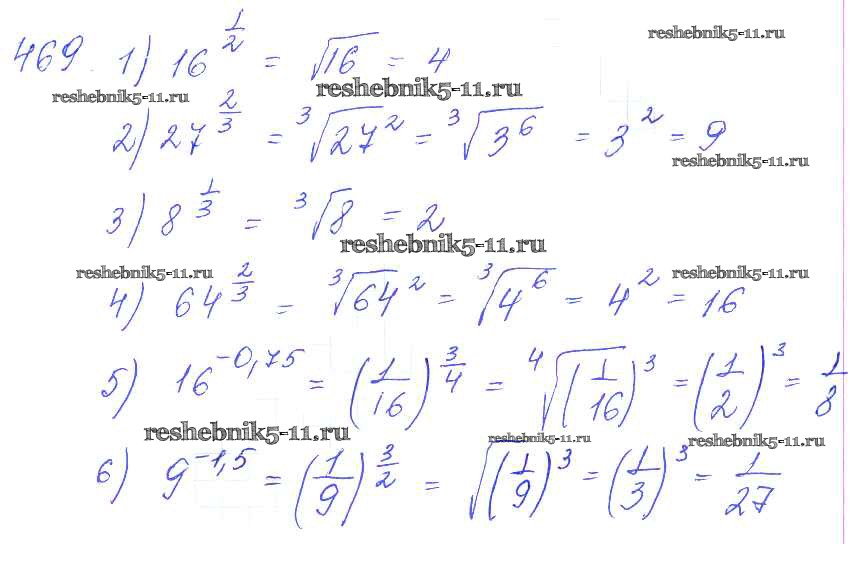 reshebnik5-11.ru
469. 1) 16^(1/2) = √16 = 4
reshebnik5-11.ru reshebnik5-11.ru
2) 27^(2/3) = ³√27² = ³√3⁶ = 3² = 9
reshebnik5-11.ru
3) 8^(1/3) = ³√8 = 2
reshebnik5-11.ru
reshebnik5-11.ru reshebnik5-11.ru
4) 64^(2/3) = ³√64² = ³√4⁶ = 4² = 16
5) 16^(-0,75) = (1/16)^(3/4) = ⁴√(1/16)³ = (1/2)³ = 1/8
reshebnik5-11.ru reshebnik5-11.ru reshebnik5-11.ru
6) 9^(-1,5) = (1/9)^(3/2) = √(1/9)³ = (1/3)³ = 1/27